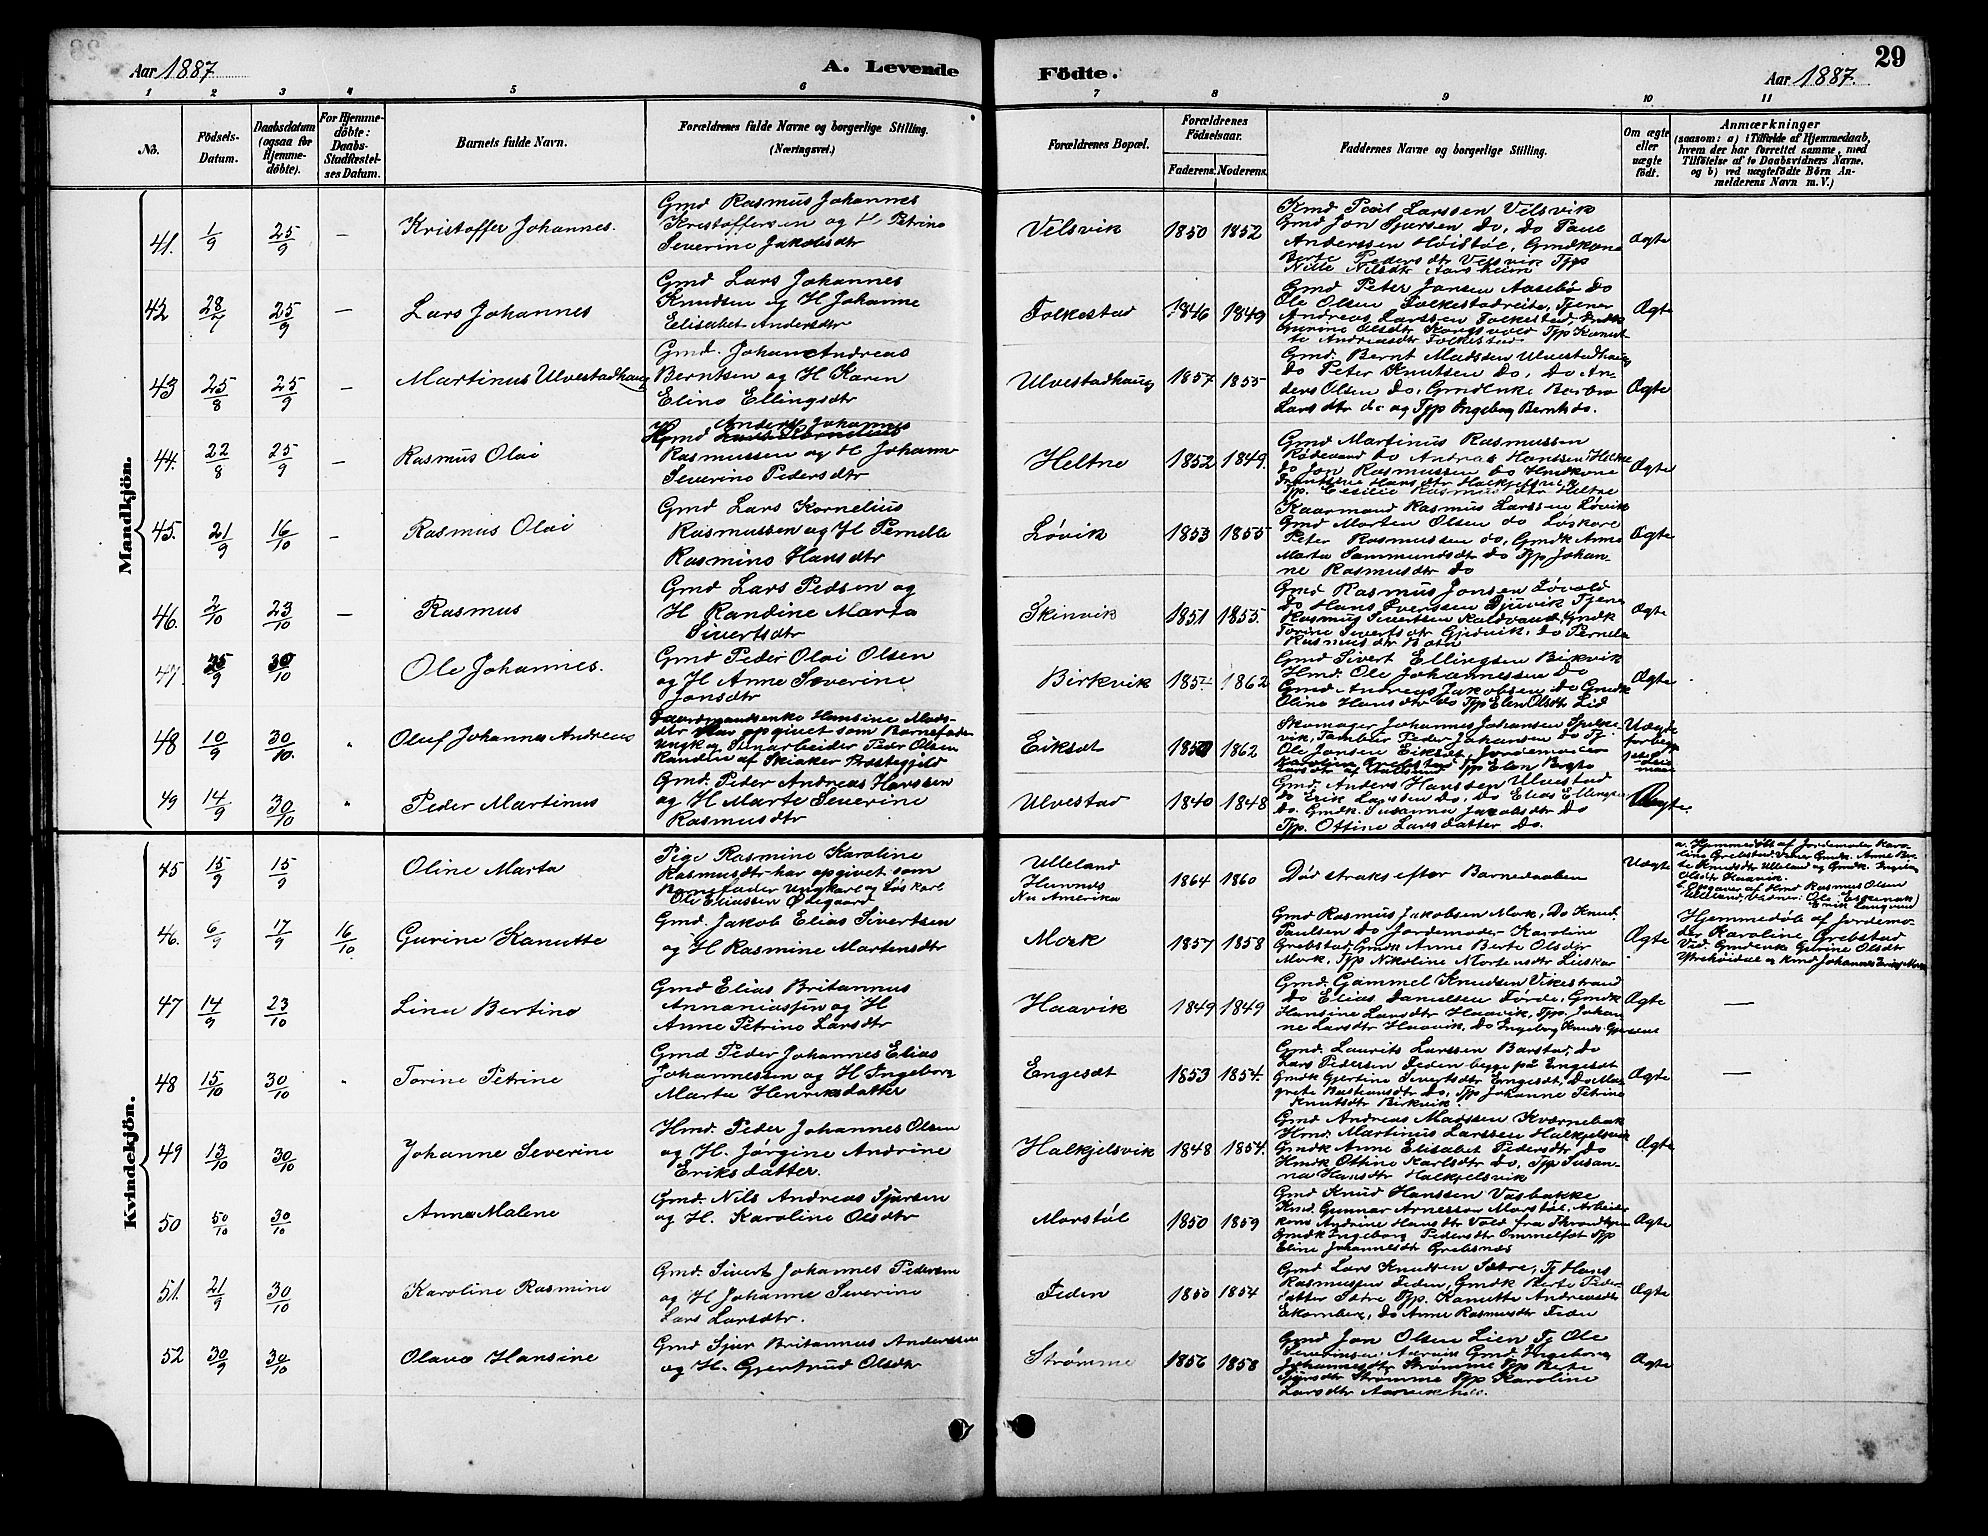 Aar 1887
A. Levende
Födte.
Aar 1887.
29
1 2 3 4 5 6 7 8 9 10 11
No.
Födsels-Datum.
Daabsdatum (ogsaa for Hjemme-döbte).
For Hjemme-döbte: Daabs-Stadfæstel-ses Datum.
Barnets fulde Navn.
Forældrenes fulde Navne og borgerlige Stilling.
(Næringsvei.)
Forældrenes Bopæl.
Forældrenes Födselsaar.
Faderens. Moderens.
Faddernes Navne og borgerlige Stilling.
Om ægte eller uægte födt.
Anmærkninger
(saasom: a) i Tilfælde af Hjemmedaab,
hvem der har forrettet samme, med
Tilföielse af to Daabsvidners Navne.
og b) ved uægtefödte Börn An-
melderens Navn m. V.)
Mandkjön.
41. 1/9 25/9 — Kristoffer Johannes.
Gmd Rasmus Johannes
Kristoffersen og H Petrine
Severine Jakobsdtr
Velsvik 1850 1852
Gmd Poul Larssen Velsvik
Gmd Jon Sjursen do, do Paul
Anderssen Höistöl, Gmdkone
Berte Pedersdtr Velsvik Tpp
Nille Nilsdtr Aarsheim
Ægte
42 28/7 25/9 — Lars Johannes
Gmd Lars Johannes
Knudsen og H Johanne
Elisabet Andersdtr
Folkestad 1846 1849
Gmd Peter Jansen Aasebö do
Ole Olsen Folkestadreite, Tjener
Andreas Larssen Folkestad, Gmdk
Gurine Olsdtr Tpp Kanut-
te Andreasdtr Folkestad
Ægte
43 25/8 25/9 — Martinus Ulvestadhaug
Gmd. Johan Andreas
Berntsen og H Karen
Eline Ellingsdtr
Ulvestadhaug 1857 1855
Gmd. Bernt Madssen Ulvestadhaug
do Peter Knutsen do, do An-
ders Olsen do, Gmdenke Barbro
Larsdtr do og Tpp Ingeborg Berntsdo.
Ægte
44. 22/8 25/9 — Rasmus Olai
Anders Johannes
Gmd
Rasmussen og H Johanne
Severine Pedersdtr
Heltne 1852 1849.
Gmd Martinus Rasmussen
Rödesand do Andreas Hanssen Heltne
do Jon Rasmussen do Hmdkone
Hansdtr Halkjelsvik
Tpp. Cecilie Rasmusdtr Heltne
Ægte
45. 21/9 16/10 — Rasmus Olai
Gmd Lars Kornelius
Rasmussen og H Pernelle
Rasmine Hansdtr
Lövik 1853 1855
Kaarmand Rasmus Larssen Lövik
Gmd Morten Olsen do Löskarl
Peter Rasmussen do, Gmdk Anne
Marta Sammundsdtr do Tpp Johan-
ne Rasmusdtr do
Ægte
46. 2/10 23/10 — Rasmus
Gmd Lars Pedsen og
H Randine Marta
Sivertsdtr
Skinvik 1851 1855.
Gmd Rasmus Jonsen Lövold
do Hans Iverssen Djuvik Tjener
Rasmus Sivertsen Kaldvand, Gmdk
Torine Sivertsdtr Gjedvik, do Pernele
Rasmusdtr Botn
Ægte
47. 25/9 30/10 Ole Johannes.
Gmd Peder Olai Olsen
og H Anne Severine
Jonsdtr
Birkvik 1862
Gmd Sivert Ellingsen Birkvik
Hmd. Ole Johannessen Do
Gmd Andreas Jakobsen Do Gmdk
Oline Hansdtr do Tpp Elen Olsdtr Lid
Ægte
48 10/9 30/10. " Oluf Johannes Andreas
Gaardmandsenke Hansine Mads-
dtr Har opgivet som Barnefader
Ungk og Simarbeider Peder Olsen
Randen af Skiaker Præstegjeld
Eiksæt 1862
Skomager Johannes Johansen Spilke-
vik, Tambur Peder Johansen do Tj.
Ole Jonsen Eiksæt, Jordemoder
Karoline Grebstad Tpp Elen Berte
Uægte
49 14/9 30/10 " Peder Martinus
Gmd. Peder Andreas Hanssen
og H Marte Severine
Rasmusdtr
Ulvestad 1840 1848
Gmd. Anders Hanssen Ulvestad
do Erik Larssen Do, Do Elias Ellingsen
Do. Gmdk. Susanne Jakobsdtr Do
Tpp. Ottine Larsdatter Do.
Ægte.
Kvindekjön.
45 15/9 15/9 Oline Marta
Pige Rasmine Karoline
Rasmusdtr har opgivet som
Barnefader Ungkarl og Löskarl
Ole Eliassen Ødegaard
Ulleland
Hunnes
Nu Amerika
1864 1860
Död straks efter Barnedaaben
Uægte
a. Hjemmedöbt af Jordemoder Karo-
line Grebstad. Vidner Gmdk. Anne Ber-
te Knudsdtr Ulleland og Gmdk. Ingeborg
Olsdtr Haavik.
b. Opgaver af Hmd Rasmus Olsen
Ulleland, Vidner: Ole
46. 6/9 17/9 16/10. Gurine Kanutte
Gmd Jakob Elias Sivertsen
og H Rasmine Martensdtr
Mork 1857 1858
Gmd Rasmus Jakobsen Mork, Do Knud
Paulsen Do Jordemoder Karoline
Grebstad, Gmdk Anne Berte Olsdtr
Mork, Tpp Nikoline Mortensdtr Lieskar
Ægte
Hjemmedöb af Jordemo-
der Karoline Grebstad
Vid. Gmdenk Gurine Olsdtr
Ytrehöidal og Kmd Johannes Mork
47 14/9 23/10 Line Bertine
Gmd Elias Britannus
Annaniassen og H
Anne Petrine Larsdtr
Haavik 1849 1849
Gmd. Gammel Knudsen Vikestrand
Do Elias Danielsen Förde. Gmdk
Hansine Larsdtr Haavik, Tpp. Johan-
ne Larsdtr Haavik, Do Ingeborg Knuds.
Ægte —
48 15/10 30/10 " Torine Petrine
Gmd Peder Johannes Elias
Johannessen og H Ingeborg
Marta Henriksdatter
Engesæt 1853 1854.
Gmd. Laurits Larssen Barstad, Do
Lars Pedersen Feden begge på Engesæt
Gmdk Gjertine Sivertsdtr Engesæt, Do Mar-
grete Bastiansdtr Do, Tpp Johanne Petrine
Knutsdtr Birkvik.
Ægte —
49 13/10 30/10 Johanne Severine
Hmd. Peder Johannes Olsen
og H. Jørgine Andrine
Eriksdatter.
Halkjelsvik 1848 1854.
Gmd Andreas Madssen Kværnebak
Hmd. Martinus Larssen Halkjelsvik
Gmdk Anne Elisabet Pedersdtr Do
Hmdk Ottine Karlsdtr Do, Tp Susan-
na Hansdtr Halkjelsvik
Ægte
50 50/10 30/10 Anne Malene
Gmd. Nils Andreas Sjursen
og H. Karoline Olsdtr
Morstöl 1850 1859
Gmd Knud Hanssen Vasbakke
Kmd. Gunnar Arnesson Morstöl, Arbeider
kone Andrine Hansdtr Vold fra Throndhjem
Gmdk Ingeborg Pedersdtr Ommelfot Tpp
Eline Johannesdtr Grebsnæs
Ægte
51. 21/9 30/10 Karoline Rasmine
Gmd. Sivert Johannes Pedersen
og H Johanne Severine
Lars Larsdtr.
Feden 1850 1854
Gmd Lars Knudsen Sætre, Tj Hans
Rasmussen Feden, Gmdk Berte Peder-
datter Sætre Tpp. Kanutte Andreasdtr
Ekornberg, Do Anne Rasmusdtr Feden
Ægte
52 30/9 30/10 Olava Hansine
Gmd Sjur Britannus Anderssen
og H. Gjertrud Olsdtr
Strømme 1856 1858
Gmd Jon Olsen Lien Tj Ole
Severinsen Aarvik Gmd Ingeborg
Johannesdtr Strømme Tpp Berte
Sjursdtr Strømme Tpp Karoline
Larsdtr
Ægte